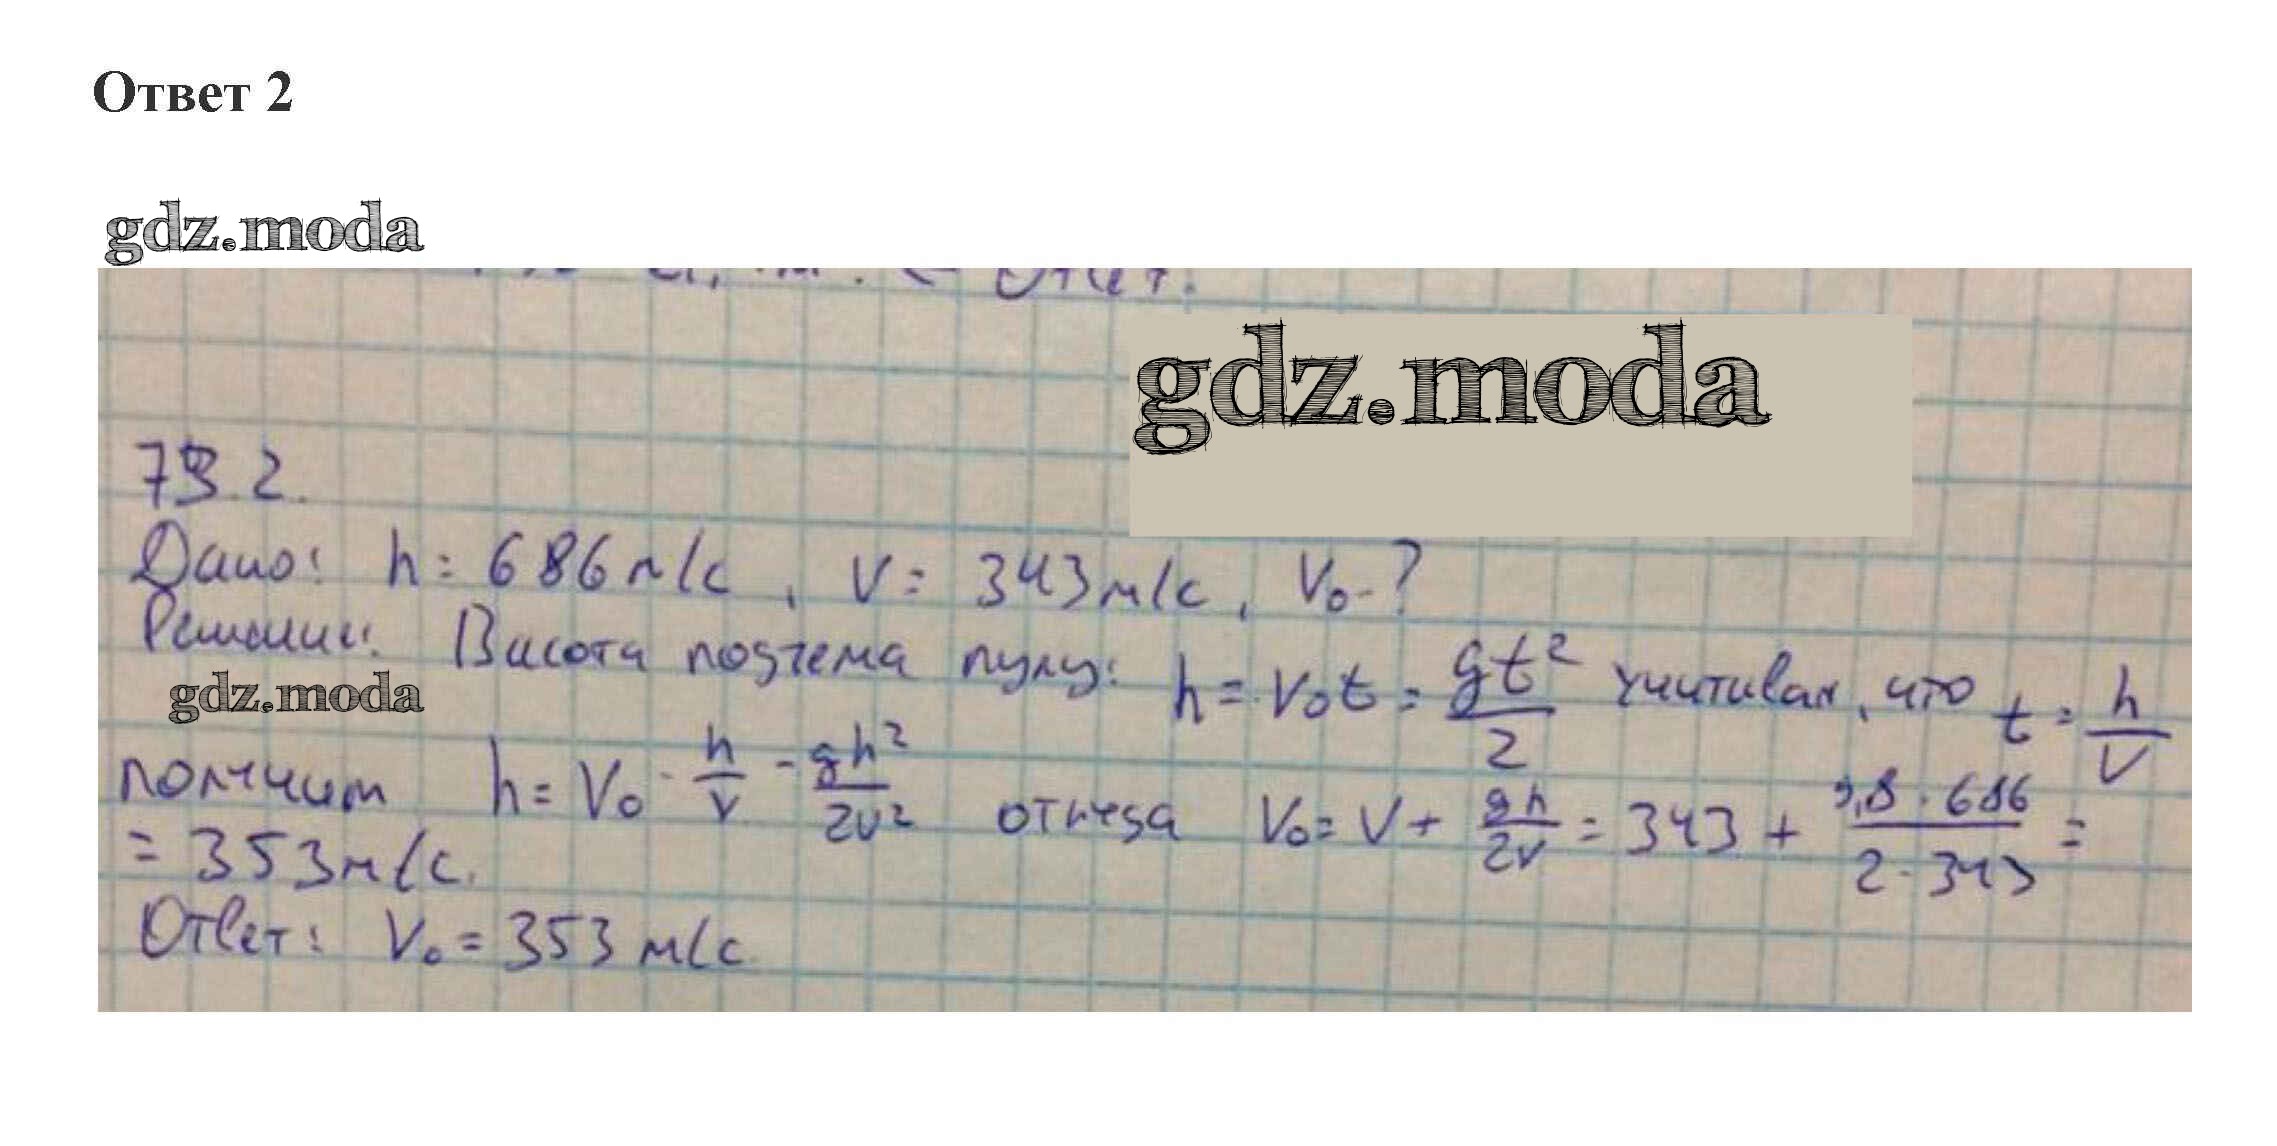 Ответ 2
gdz.moda
Ответ.
gdz.moda
73.2.
Дано: h = 686 м/с, V = 343 м/с, V₀ - ?
Решение: Висота подъема пулу: h = V₀t = gt²/2 учитивая, что t = h/V
gdz.moda
получим h = V₀ · h/v - gh²/2v² откуда V₀ = V + gh/2v = 343 + 9,8 · 686/2 · 343 =
= 353 м/с.
Ответ: V₀ = 353 м/с.